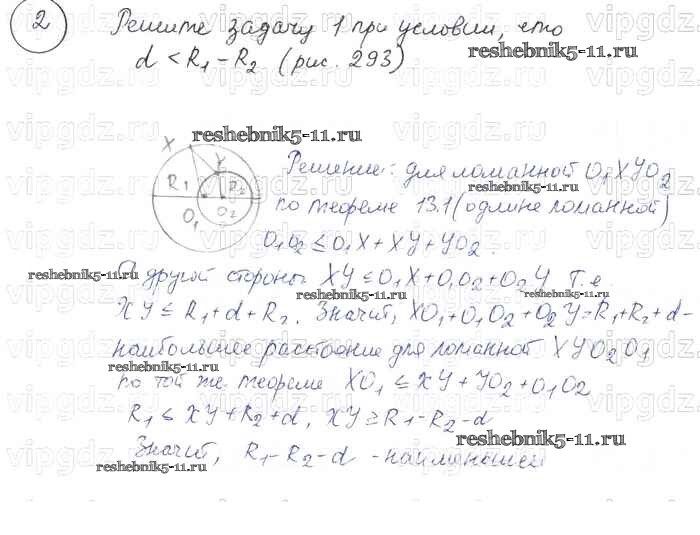 2 Решите задачу 1 при условии, что
d < R₁ - R₂ (рис. 293)
reshebnik5-11.ru
reshebnik5-11.ru
X
Y
R₁ R₂
O₁ O₂
Решение: для ломанной O₁XYO₂
по теореме 13.1 (о длине ломанной)
O₁O₂ ≤ O₁X + XY + YO₂.
С другой стороны XY ≤ O₁X + O₁O₂ + O₂Y т.е.
reshebnik5-11.ru
reshebnik5-11.ru
reshebnik5-11.ru
XY ≤ R₁ + d + R₂. Значит, XO₁ + O₁O₂ + O₂Y = R₁ + R₂ + d -
наибольшее расстояние для ломанной XYO₂O₁
reshebnik5-11.ru
по той же теореме XO₁ ≤ XY + YO₂ + O₁O₂
R₁ ≤ XY + R₂ + d, XY ≥ R₁ - R₂ - d
reshebnik5-11.ru
Значит, R₁ - R₂ - d - наименьшее
reshebnik5-11.ru